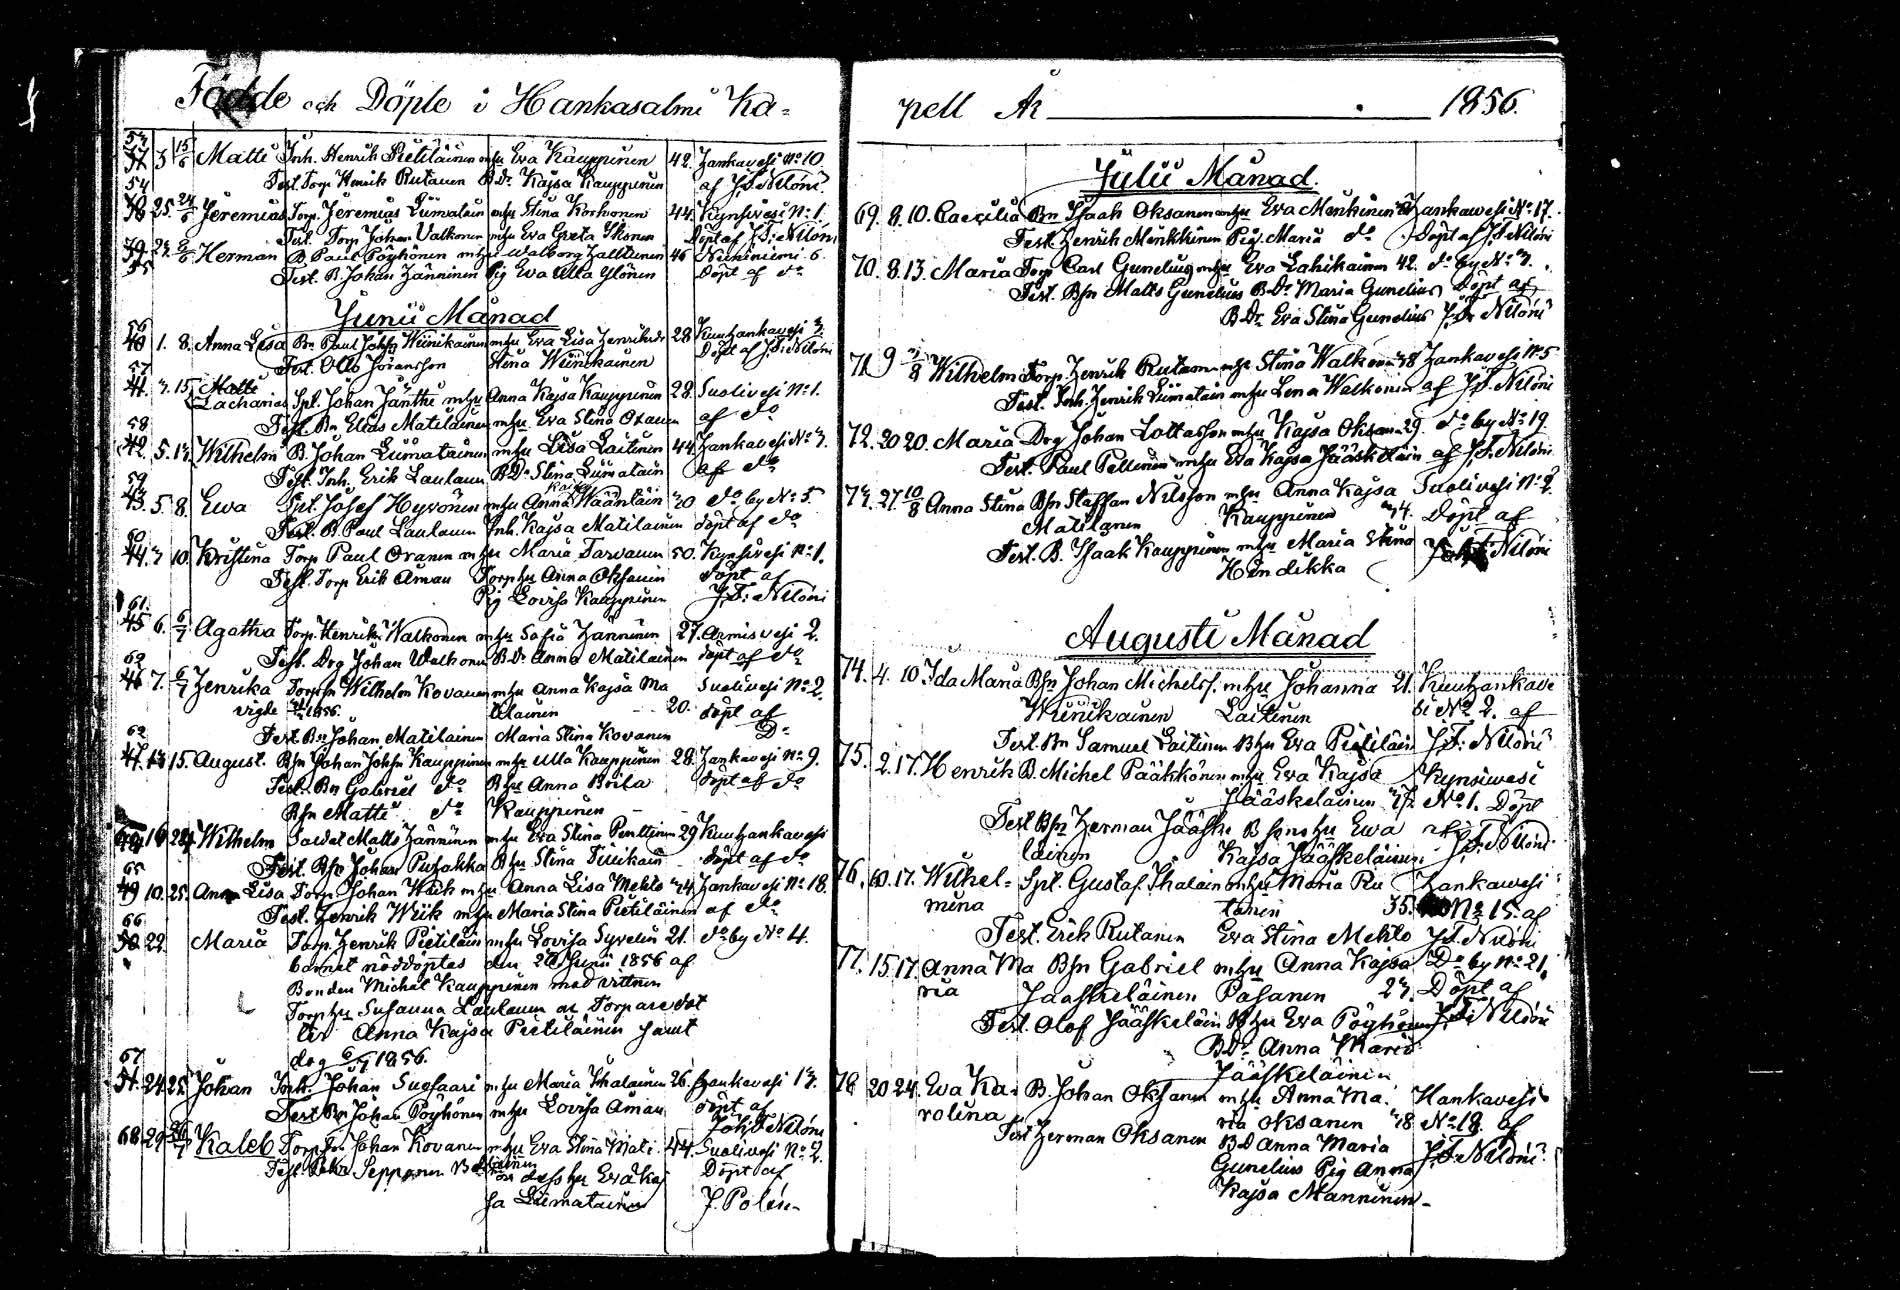 Födde och Döpte i Hankasalmi Ka=
53 3 15/6 Matti Inh. Henrik Pietiläinen m hu Eva Kauppinen 42. Hankavesi No 10.
Test. Torp. Henrik Rutanen B. Dr. Kajsa Kauppinen af J. F. Nilóni
54 25. Jeremias Torp. Jeremias Liimatain m hu Stina Korhonen 44. Kynsivesi No 1.
Test. Torp Johan Valkonen m hu Eva Greta Ikonen Döpt af J. F. Nilóni
55 Herman B. Paul Pöyhönen m hu Walborg Halttunen 46 Niininiemi 6.
Test. B. Johan Hänninen Pig Eva Ulla Ylönen Döpt af do
Junii Månad
56 1. 8. Anna Lisa Bn. Paul Johss Wiinikainen m hu Eva Lisa Henriksdr 28 Kuuhankavesi 3.
Test. Otto Göransson Stina Wiinikainen Döpt af J. F. Nilóni
57 3. 15. Matts Zacharias Spl. Johan Janthe m hu Anna Kajsa Kauppinen 28. Suolivesi No 1.
Test. Bn Elias Matilainen m hu Eva Stina Oranen af do
58 5. 13. Wilhelm B. Johan Liimatainen m hu Lisa Laitinen 44. Hankavesi No 3.
Test. Inh. Erik Laulanen B. Dr. Stina Liimatain af do
59 5. 8. Ewa Spl. Josef Hyvönen m hu Anna Kajsa Wääntäin 30 do by No 5.
Test. B. Paul Laulanen Inh. Kajsa Matilainen döpt af do
60 3 10. Kristina Torp Paul Oranen m hu Maria Tarvainen 50. Kynsivesi No 1.
Test. Torp Erik Åman Torp hu Anna Oksanen döpt af
Pig Lovisa Kauppinen J. F. Nilóni
61. 6. 6/7 Agatha Torp. Henrik Walkonen m hu Sofia Hänninen 27. Armisvesi 2.
Test. Drg Johan Walkonen B. Dr. Anna Matilainen döpt af do
62 7. 6/7 Henrika Torpsn Wilhelm Kovanen m hu Anna Kajsa Ma Suolivesi No 2.
vigde 1856. tilainen 20. döpt af
Test. Bn Johan Matilainen Maria Stina Kovanen Do
63 13 15. August. Bsn Johan Johss Kauppinen m hu Ulla Kauppinen 28. Hankavesi No 9.
Test. Bn Gabriel do B hu Anna Brita döpt af do
Bsn Matti do Kauppinen
64 16 24 Wilhelm Soldat Matts Hänninen m hu Eva Stina Penttinen 29 Kuuhankavesi
Test. Bsn Johan Puhakka B hu Stina Tiihkain döpt af do
65 10. 25. Anna Lisa Torp. Johan Wiik m hu Anna Lisa Mehto 34. Hankavesi No 18.
Test. Henrik Wiik m hu Maria Stina Pietiläinen af do
66 22 Maria Torp. Henrik Pietiläin m hu Lovisa Syvelin 21. do by No 4.
barnet nöddöptes den 26 Junii 1856 af
Bonden Michel Kauppinen med vittnen
Torp hu Susanna Laulanen ae Torpare dot
ter Anna Kajsa Pietiläinen samt
dog 6/7 1856.
67 24 25 Johan Inh. Johan Suosaari m hu Maria Ihalainen 26. Hankavesi 13.
Test Bn Johan Pöyhönen m hu Lovisa Åman döpt af
Joh. F. Nilóni
68 29 Kaleb Torpsn Johan Kovanen m hu Eva Stina Mati 44 Suolivesi No 2.
Test. Pekka Sepponen lainen dess hu Eva Kaj Döpt af
sa Liimatainen J. Polén
pell År 1856.
Julii Månad.
69. 8. 10. Caecilia Bn Isaak Oksanen m hu Eva Minkinen Hankawesi No 17.
Test Henrik Minkkinen Pig. Maria do Döpt af J. F. Nilóni
70. 8. 13. Maria Torp. Carl Gunelius m hu Eva Lahikainen 42. do by No 3.
Test. Bsn Matts Gunelius B. Dr Maria Gunelius Döpt af
B Dr. Eva Stina Gunelius J. F. Nilóni
71. 9 3/8 Wilhelm Torp. Henrik Rutanen m hu Stina Walkonen 38 Hankavesi No 5
Test. Inh. Henrik Liimatain m hu Lena Walkonen af J. F. Nilóni
72. 20 20. Maria Drg Johan Lottasson m hu Kajsa Oksanen 29. do by No 19.
Test. Paul Pellinen m hu Eva Kajsa Jääskeläin af J. F. Nilóni
73. 27. 10/8 Anna Stina Bsn Staffan Nilsson m hu Anna Kajsa Suolivesi No 2.
Matilanen Kauppinen 34. Döpt af
Test. B. Isaak Kauppinen m hu Maria Stina Joh. F. Nilóni
Hindikka
Augusti Månad
74. 4. 10 Ida Maria Bsn Johan Michelss. m hu Johanna 21. Kuuhankave
Wiinikainen Laitinen si No 2. af
Test. Bn Samuel Laitinen B hu Eva Pietiläin J. F. Nilóni
75. 2. 17. Henrik B. Michel Pääkkönen m hu Eva Kajsa Kynsiwesi
Jääskeläinen 37. No 1. Döpt
Test Bsn Herman Jääske B sons hu Ewa af J. F. Nilóni
läinen Kajsa Jääskeläinen.
76. 10. 17. Wilhel= Spl. Gustaf Ihalain m hu Maria Ru Hankawesi
mina tanen 35. No 15. af
Test. Erik Rutanen Eva Stina Mehto J. F. Nilóni
77. 15 17. Anna Ma Bsn Gabriel m hu Anna Kajsa Do by No 21.
ria Jääskeläinen Pasanen 23. Döpt af
Test. Olof Jääskeläin B hu Eva Pöyhönen J. F. Nilóni
B. Dr. Anna Maria
Jääskeläinen
78 20 24. Eva Ka= B. Johan Oksanen m hu Anna Ma. Hankavesi
rolina ria Oksanen 38 No 18. af
Test Herman Oksanen B D Anna Maria J. F. Nilóni
Gunelius Pig Anna
Kajsa Manninen